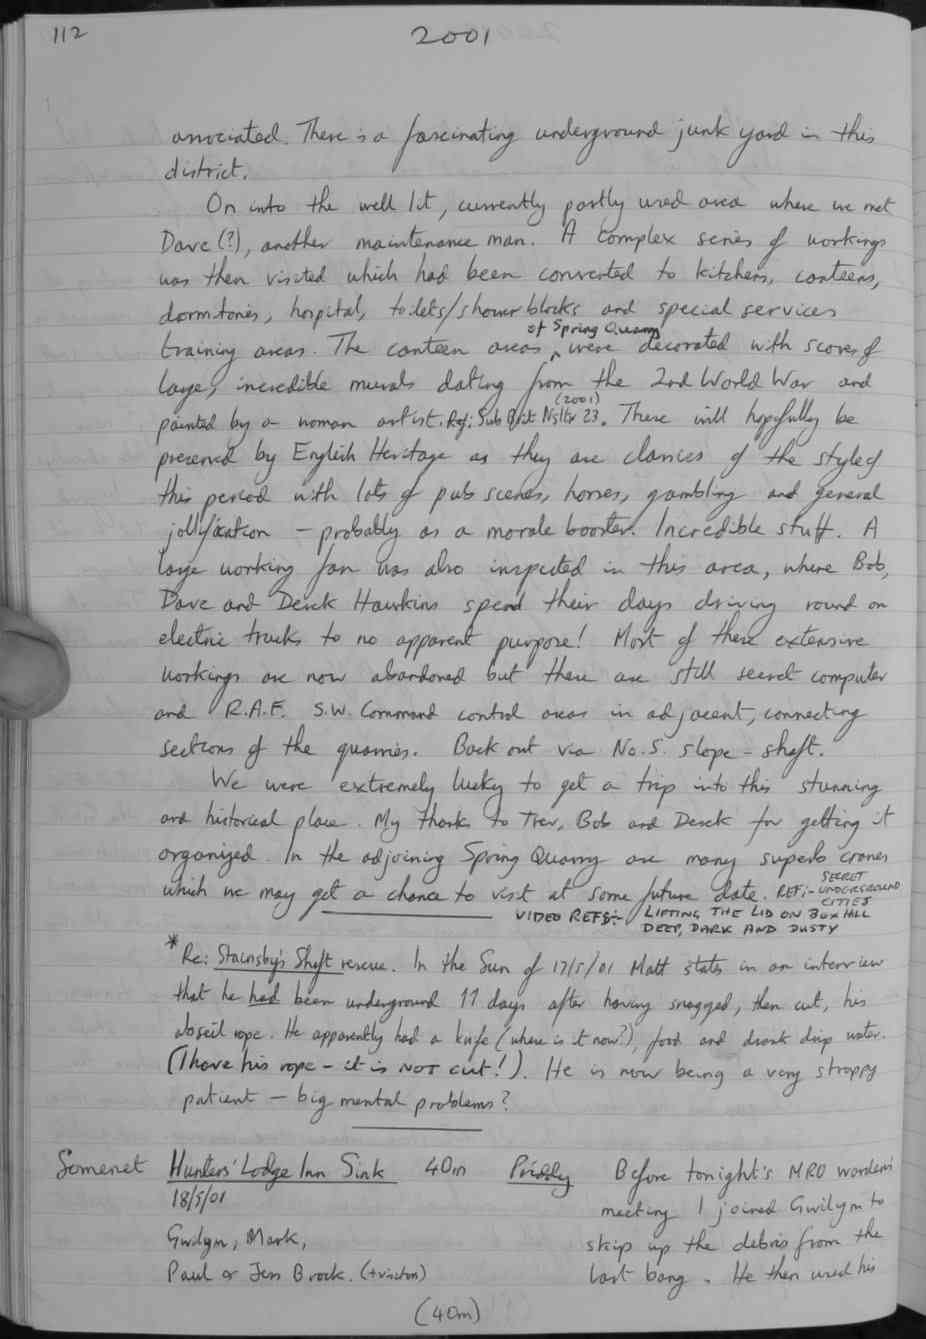 112
2001
associated. There is a fascinating underground junk yard in this
district.
On into the well lit, currently partly used area where we met
Dave (?), another maintenance man. A complex series of workings
was then visited which had been converted to kitchens, canteens,
dormitories, hospital, toilets/shower blocks and special services
of Spring Quarry
training areas. The canteen areas ^ were decorated with scores of
large, incredible murals dating from the 2nd World War and
(2001)
painted by a woman artist. Ref: Sub Brit Nsltr 23. These will hopefully be
preserved by English Heritage as they are classics of the style of
this period with lots of pub scenes, horses, gambling and general
jollification - probably as a morale booster. Incredible stuff. A
large working fan was also inspected in this area, where Bob,
Dave and Derek Hawkins spend their days driving round on
electric trucks to no apparent purpose! Most of these extensive
workings are now abandoned but there are still secret computer
and R.A.F. S.W. Command control areas in adjacent, connecting
sections of the quarries. Back out via No. 5. slope-shaft.
We were extremely lucky to get a trip into this stunning
and historical place. My thanks to Trev, Bob and Derek for getting it
organized. In the adjoining Spring Quarry are many superb cranes
which we may get a chance to visit at some future date. REF:- SECRET
UNDERGROUND
CITIES
VIDEO REFS:- LIFTING THE LID ON BOX HILL
DEEP, DARK AND DUSTY
* Re: Stainsby's Shaft rescue. In the Sun of 17/5/01 Matt states in an interview
that he had been underground 11 days after having snagged, then cut, his
abseil rope. He apparently had a knife (where is it now?), food and drank drip water.
(I have his rope - it is NOT cut!). He is now being a very stroppy
patient - big mental problems?
Somerset Hunters' Lodge Inn Sink 40m Priddy Before tonight's MRO wardens'
18/5/01 meeting I joined Gwilym to
Gwilym, Mark, skip up the debris from the
Paul & Jess Brock. (+visitors) last bang. He then used his
(40m)